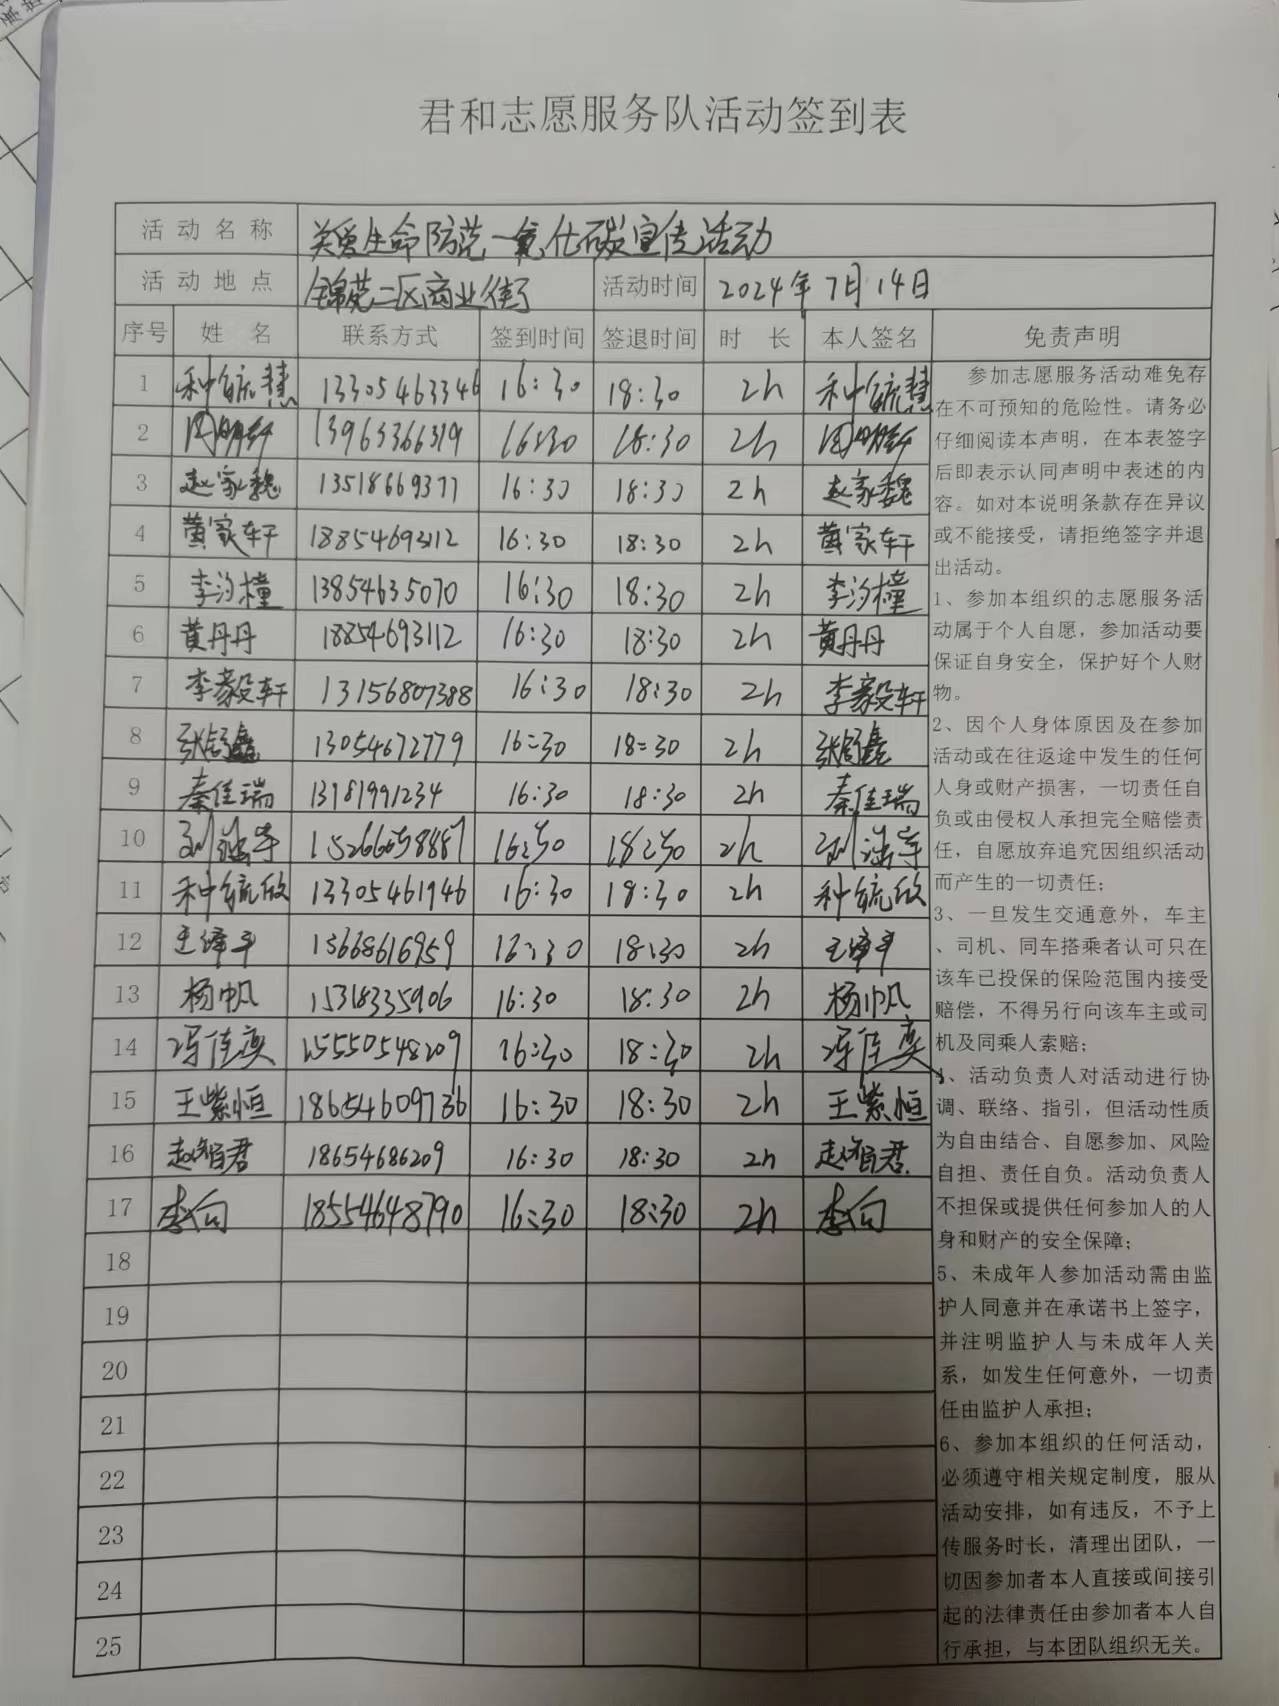 君和志愿服务队活动签到表
活动名称 关爱生命防范一氧化碳宣传活动
活动地点 锦苑二区商业街 活动时间 2024年7月14日
序号 姓 名 联系方式 签到时间 签退时间 时 长 本人签名 免责声明
1 种毓慧 13305463346 16:30 18:30 2h 种毓慧
2 13963366319 16:30 18:30 2h
3 赵家魏 13518669377 16:30 18:30 2h 赵家魏
4 黄家轩 18854693112 16:30 18:30 2h 黄家轩
5 李汐橦 13854635070 16:30 18:30 2h 李汐橦
6 黄丹丹 18854693112 16:30 18:30 2h 黄丹丹
7 李毅轩 13156807388 16:30 18:30 2h 李毅轩
8 13054672779 16:30 18:30 2h
9 秦佳瑞 16:30 18:30 2h 秦佳瑞
10 2h
11 种毓欣 13305461946 16:30 18:30 2h 种毓欣
12 13668616959 16:30 18:30 2h
13 杨帆 15318335906 16:30 18:30 2h 杨帆
14 冯佳奕 15550548209 16:30 18:30 2h 冯佳奕
15 王紫恒 18654609736 16:30 18:30 2h 王紫恒
16 赵智君 18654686209 16:30 18:30 2h 赵智君
17 18554648790 16:30 18:30 2h
18
19
20
21
22
23
24
25
参加志愿服务活动难免存
在不可预知的危险性。请务必
仔细阅读本声明，在本表签字
后即表示认同声明中表述的内
容。如对本说明条款存在异议
或不能接受，请拒绝签字并退
出活动。
1、参加本组织的志愿服务活
动属于个人自愿，参加活动要
保证自身安全，保护好个人财
物。
2、因个人身体原因及在参加
活动或在往返途中发生的任何
人身或财产损害，一切责任自
负或由侵权人承担完全赔偿责
任，自愿放弃追究因组织活动
而产生的一切责任；
3、一旦发生交通意外，车主
、司机、同车搭乘者认可只在
该车已投保的保险范围内接受
赔偿，不得另行向该车主或司
机及同乘人索赔；
4、活动负责人对活动进行协
调、联络、指引，但活动性质
为自由结合、自愿参加、风险
自担、责任自负。活动负责人
不担保或提供任何参加人的人
身和财产的安全保障；
5、未成年人参加活动需由监
护人同意并在承诺书上签字，
并注明监护人与未成年人关
系，如发生任何意外，一切责
任由监护人承担；
6、参加本组织的任何活动，
必须遵守相关规定制度，服从
活动安排，如有违反，不予上
传服务时长，清理出团队，一
切因参加者本人直接或间接引
起的法律责任由参加者本人自
行承担，与本团队组织无关。